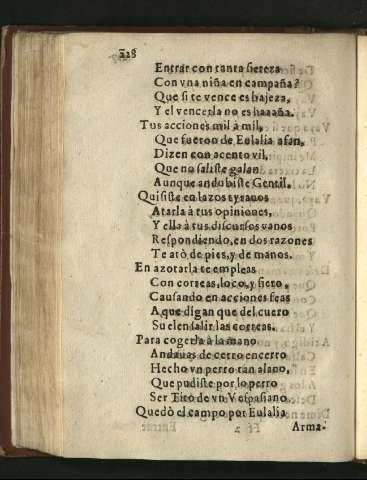 228
Entrar con tanta fiereza
Con vna niña en campaña?
Que si te vence es bajeza,
Y el vencerla no es hazaña.
Tus acciones mil à mil,
Que fueron de Eulalia afan,
Dizen con acento vil,
Que no saliste galan
Aunque andubiste Gentil.
Quisiste en lazos tyranos
Atarla à tus opiniones,
Y ella à tus discursos vanos
Respondiendo, en dos razones
Te atò de pies, y de manos.
En azotarla te empleas
Con correas, loco, y fiero,
Causando en acciones feas
A que digan que del cuero
Suelen salir las correas.
Para cogerla à la mano
Andauas de cerro en cerro
Hecho vn perro tan alano,
Que pudiste por lo perro
Ser Tito de vn Vespasiano.
Quedò el campo por Eulalia
Ff 2
Arma-